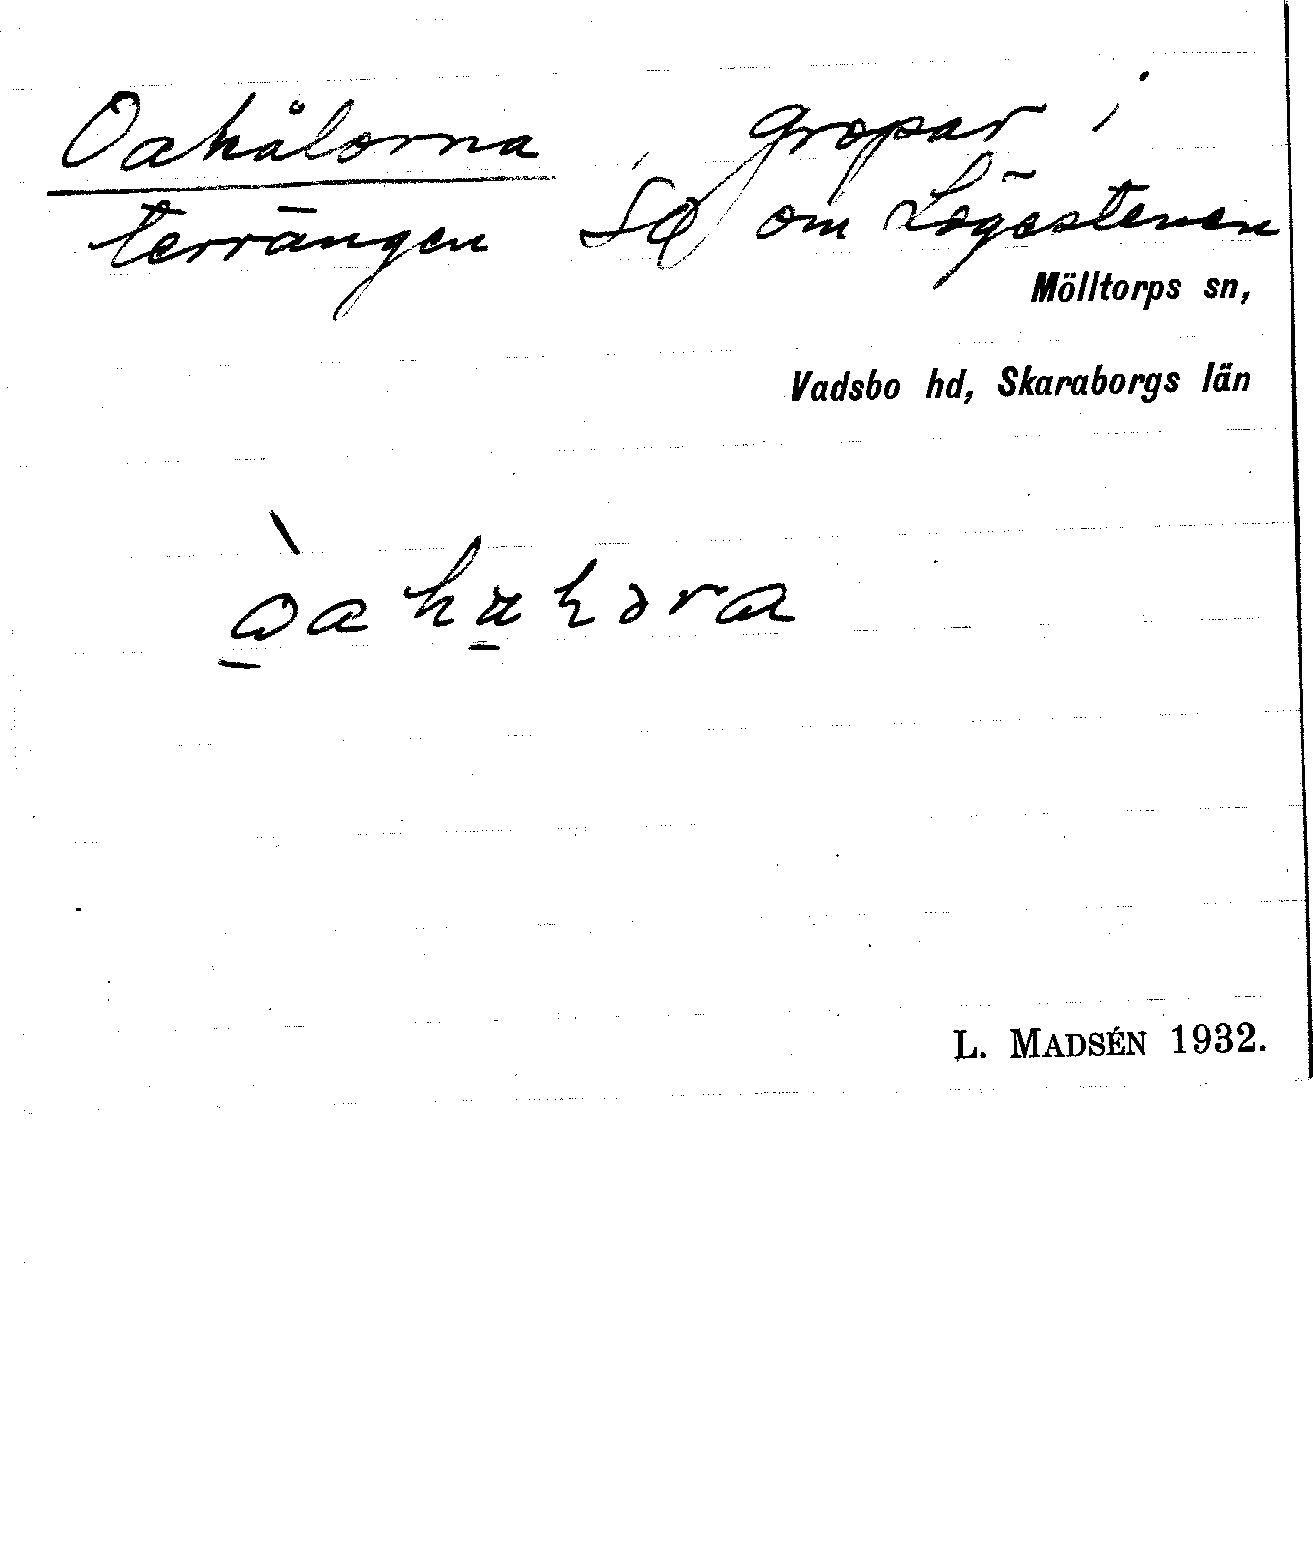 Oahålorna, gropar i
terrängen SO om Lögestenen
Mölltorps sn,
Vadsbo hd, Skaraborgs län
L. MADSÉN 1932.